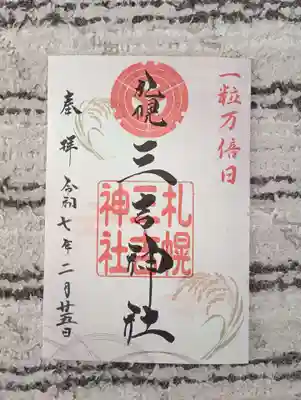 一粒万倍日
札幌
三吉神社
札幌
三吉
神社
奉拝 令和七年二月廿五日